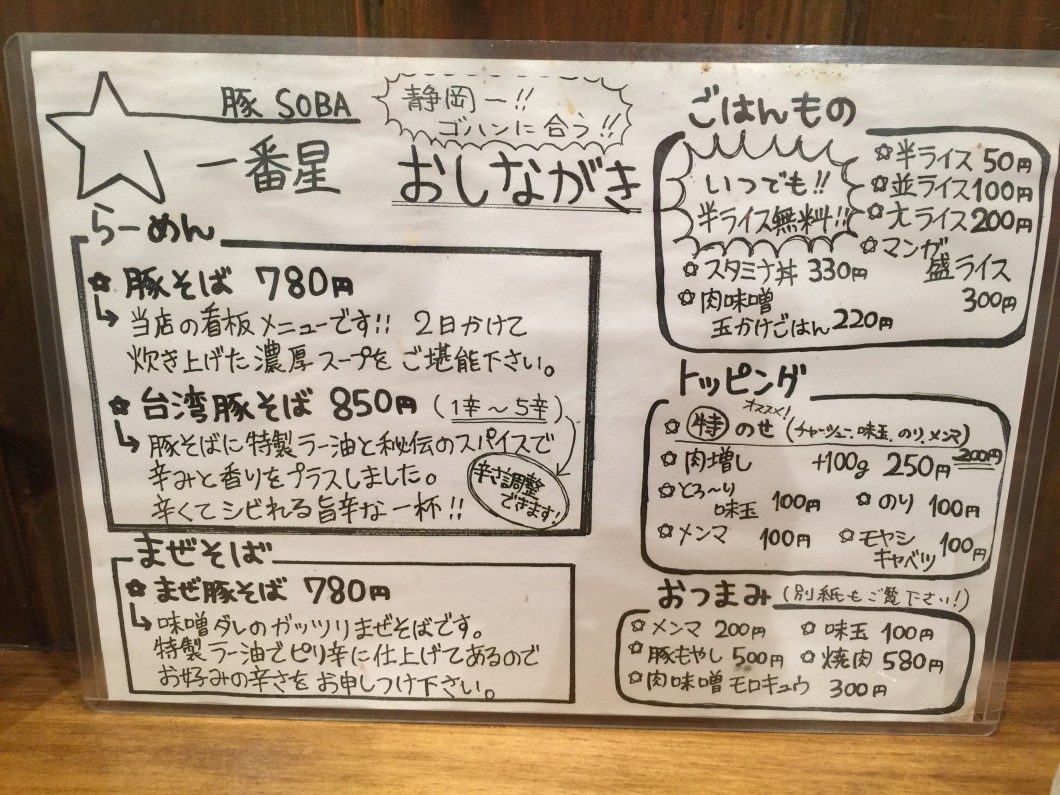 豚 SOBA
一番星
静岡一!!
ゴハンに合う!!
おしながき
らーめん
☆豚そば 780円
当店の看板メニューです!! 2日かけて
炊き上げた濃厚スープをご堪能下さい。
☆台湾豚そば 850円 (1辛～5辛)
豚そばに特製ラー油と秘伝のスパイスで
辛みと香りをプラスしました。
辛くてシビれる旨辛な一杯!!
辛さ調整
できます!
まぜそば
☆まぜ豚そば 780円
味噌ダレのガッツリまぜそばです。
特製ラー油でピリ辛に仕上げてあるので
お好みの辛さをお申しつけ下さい。
ごはんもの
いつでも!!
半ライス無料!!
☆半ライス 50円
☆並ライス 100円
☆大ライス 200円
☆マンガ
盛ライス
300円
☆スタミナ丼 330円
☆肉味噌
玉かけごはん 220円
トッピング
オススメ!
☆特のせ (チャーシュー、味玉、のり、メンマ)
200円
☆肉増し +100g 250円
☆とろ～り
味玉 100円
☆のり 100円
☆メンマ 100円
☆モヤシ
キャベツ 100円
おつまみ (別紙もご覧下さい!)
☆メンマ 200円 ☆味玉 100円
☆豚もやし 500円 ☆焼肉 580円
☆肉味噌モロキュウ 300円